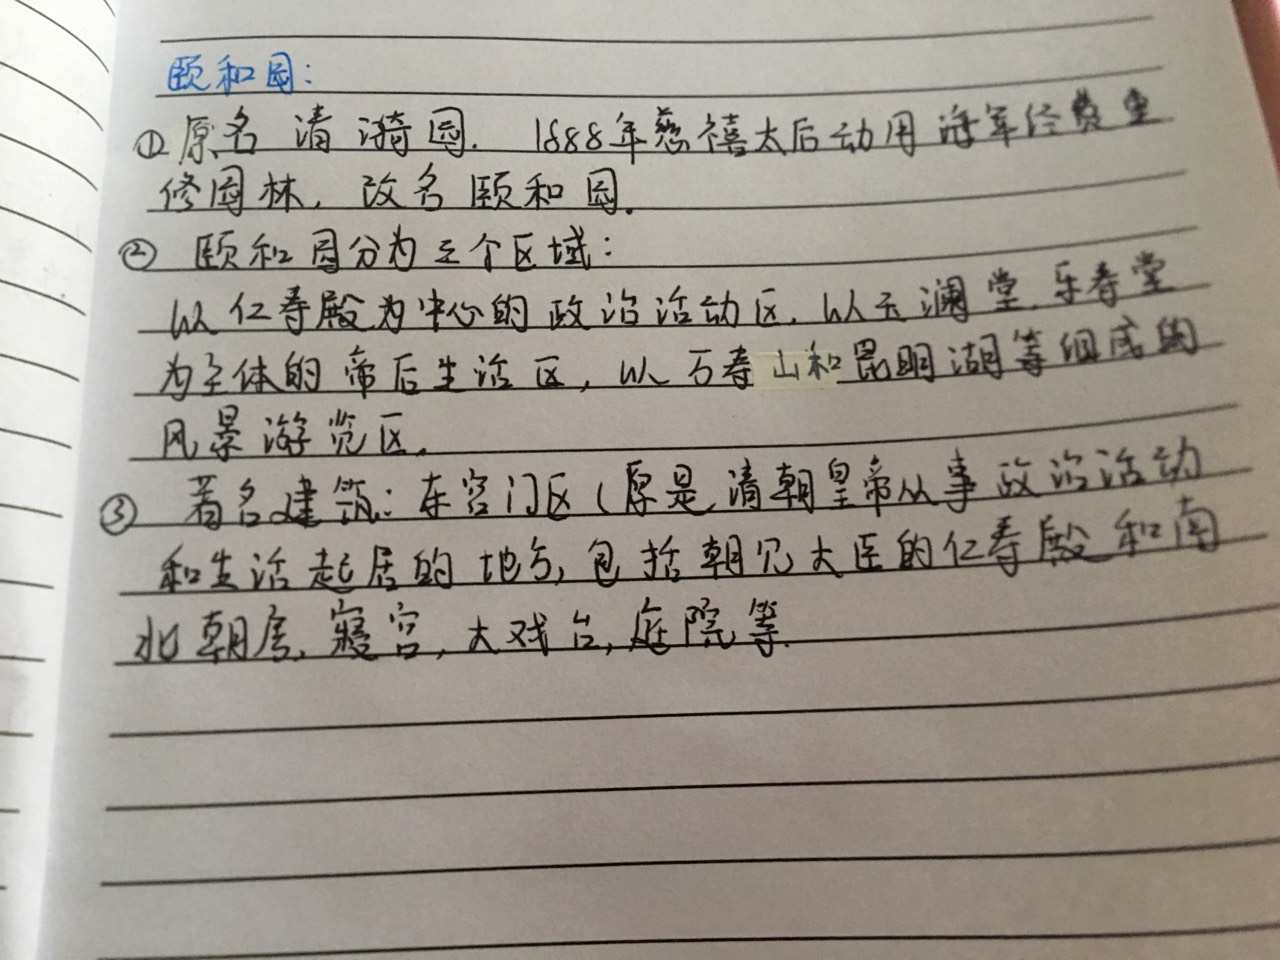 颐和园:
①原名 清漪园. 1888年慈禧太后动用海军经费重
修园林, 改名颐和园.
② 颐和园分为三个区域:
以仁寿殿为中心的政治活动区, 以玉澜堂、乐寿堂
为主体的帝后生活区, 以万寿山和昆明湖等组成的
风景游览区.
③ 著名建筑: 东宫门区(原是清朝皇帝从事政治活动
和生活起居的地方, 包括朝见大臣的仁寿殿和南
北朝房, 寝宫, 大戏台, 庭院等.